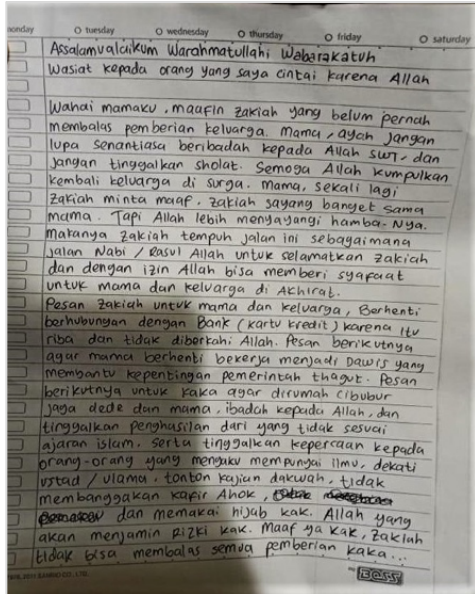 monday O tuesday O wednesday O thursday O friday O saturday
Assalamualaikum Warahmatullahi Wabarakatuh
Wasiat kepada orang yang saya cintai karena Allah
Wahai mamaku, maafin zakiah yang belum pernah
membalas pemberian keluarga. Mama, ayah jangan
lupa senantiasa beribadah kepada Allah swt, dan
jangan tinggalkan sholat. Semoga Allah kumpulkan
kembali keluarga di surga. mama, sekali lagi
zakiah minta maaf. zakiah sayang banget sama
mama. Tapi Allah lebih menyayangi hamba-Nya.
makanya zakiah tempuh jalan ini sebagaimana
jalan Nabi / Rasul Allah untuk selamatkan zakiah
dan dengan izin Allah bisa memberi syafaat
untuk mama dan keluarga di Akhirat.
Pesan zakiah untuk mama dan keluarga, Berhenti
berhubungan dengan Bank (kartu kredit) karena itu
riba dan tidak diberkahi Allah. Pesan berikutnya
agar mama berhenti bekerja menjadi Dawis yang
membantu kepentingan pemerintah thagut. Pesan
berikutnya untuk kaka agar dirumah cibubur
jaga dede dan mama, ibadah kepada Allah, dan
tinggalkan penghasilan dari yang tidak sesuai
ajaran islam. serta tinggalkan kepercaan kepada
orang-orang yang mengaku mempunyai ilmu, dekati
ustad / ulama, tonton kajian dakwah, tidak
membanggakan kafir Ahok,
dan memakai hijab kak. Allah yang
akan menjamin rizki kak. maaf ya kak, zakiah
tidak bisa membalas semua pemberian kaka...
BOSS